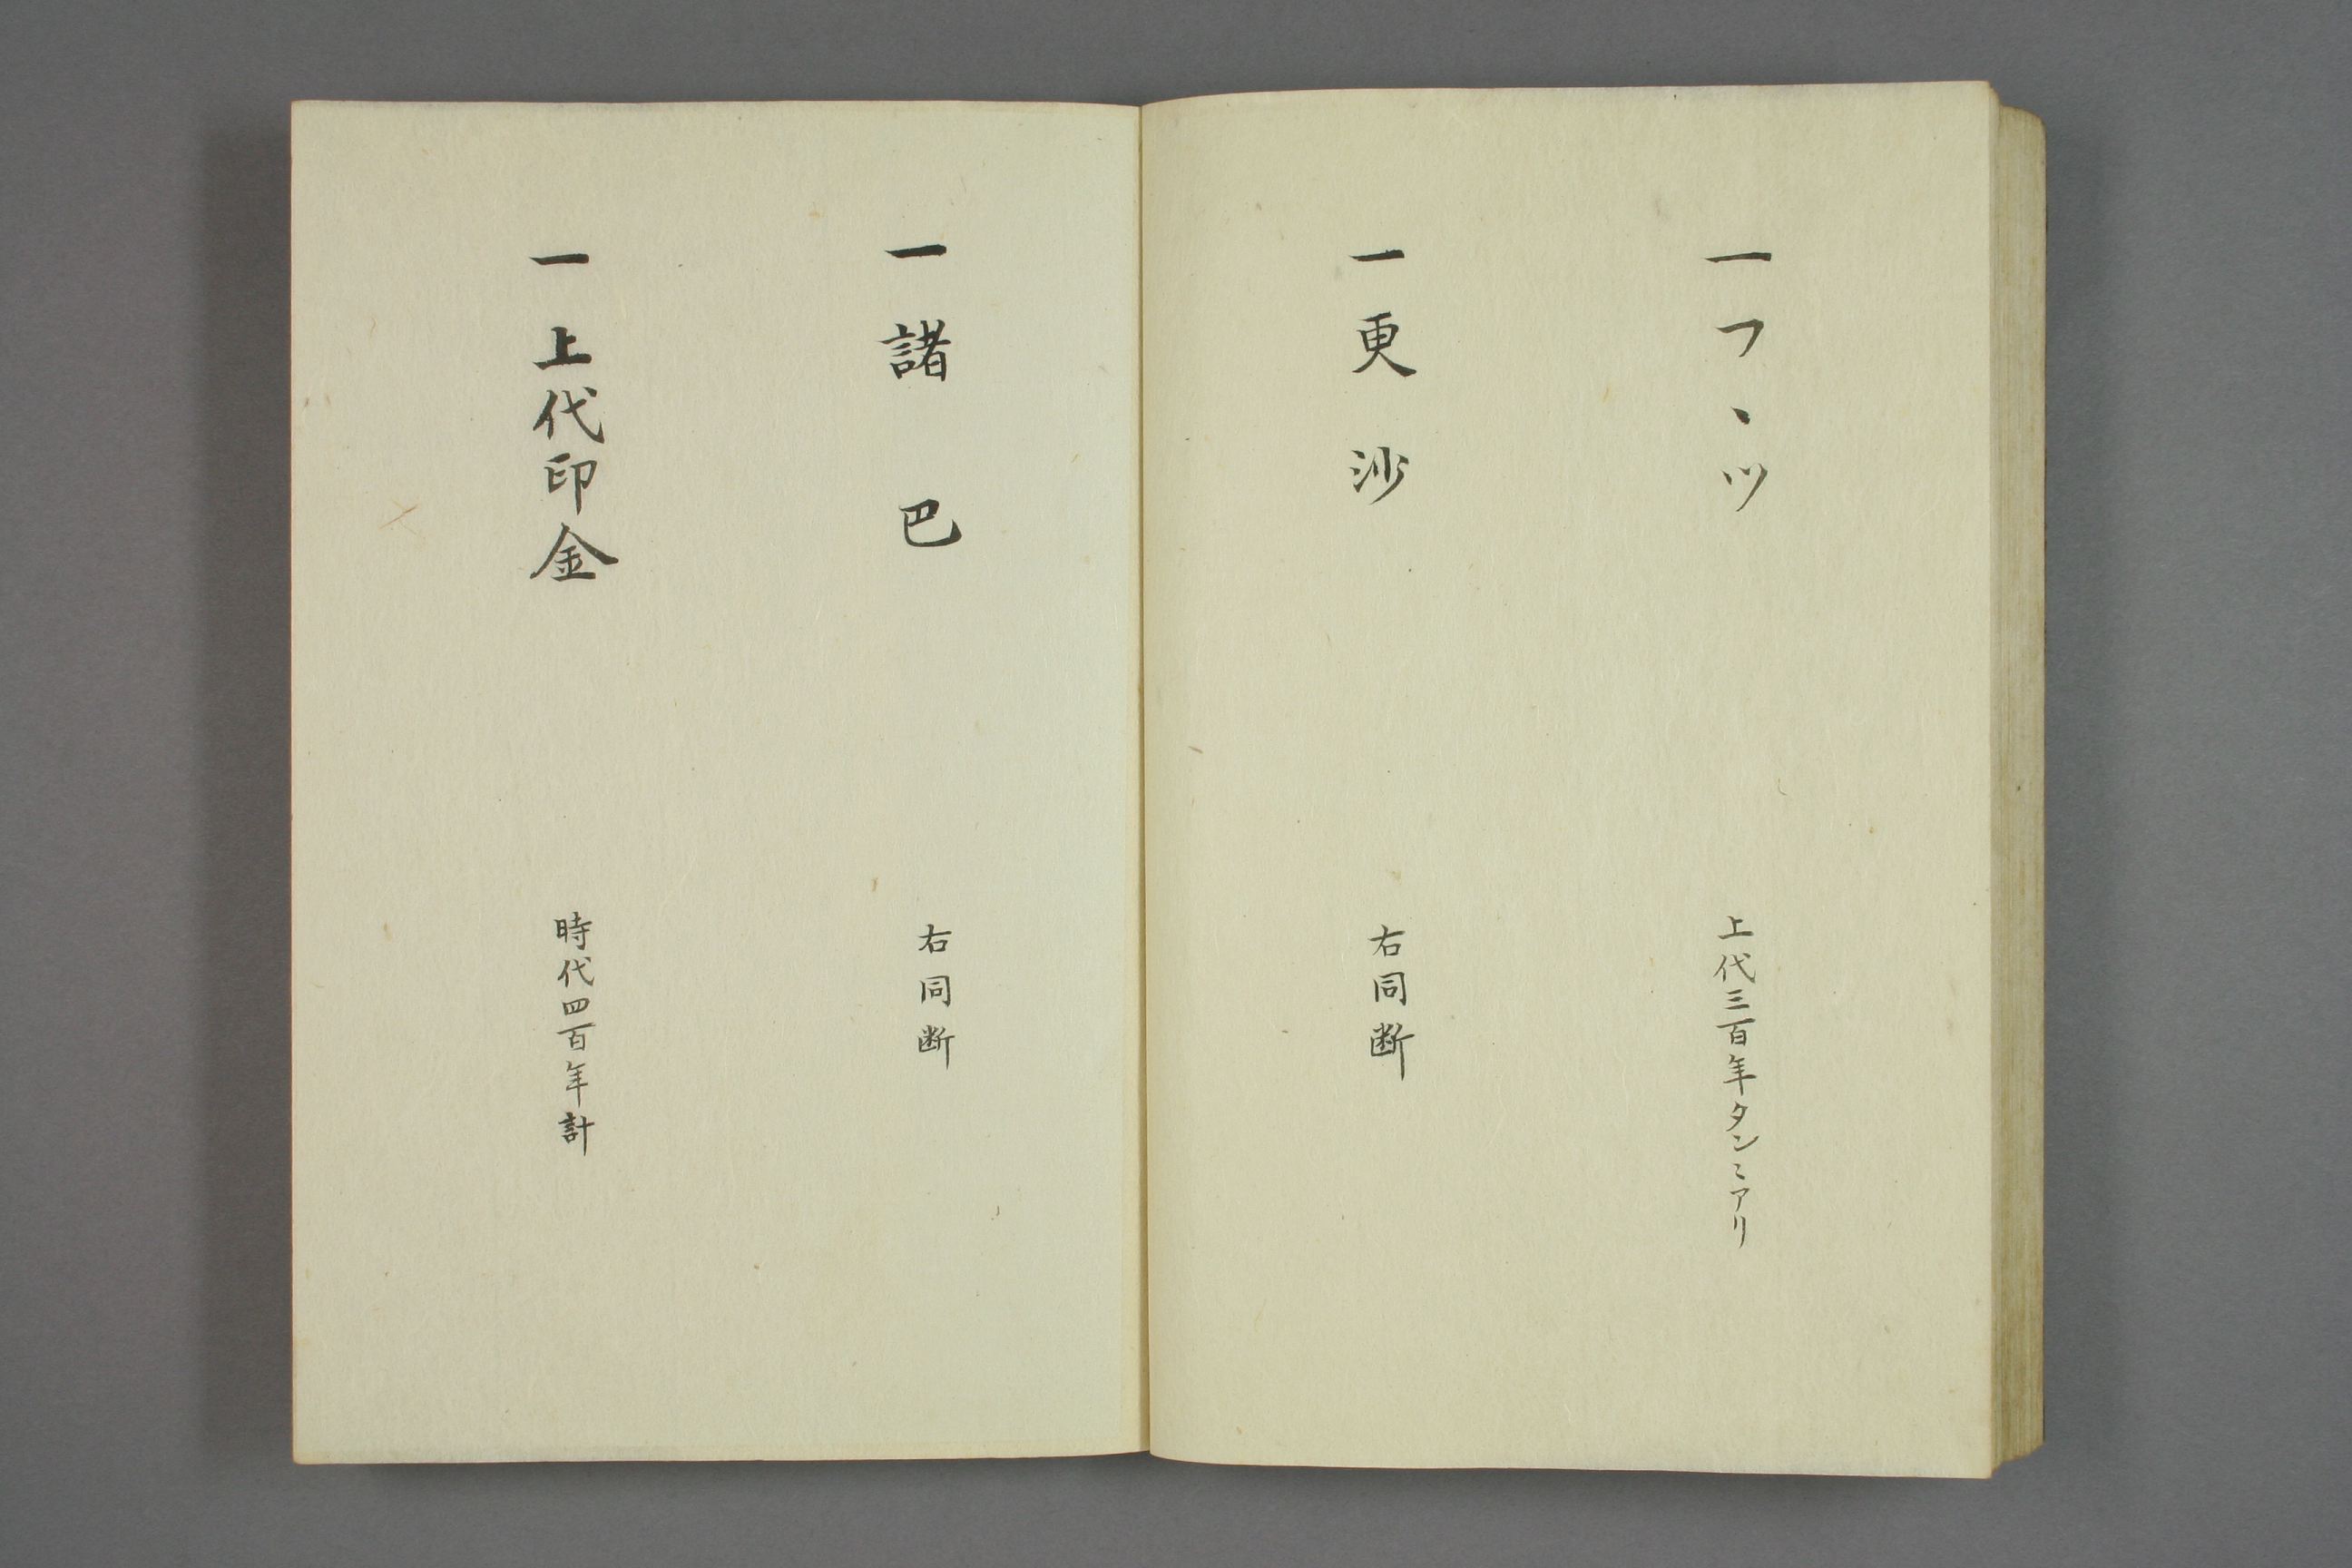 一フヽツ 上代三百年タンミアリ
一更沙 右同断
一諸巴 右同断
一上代印金 時代四百年計